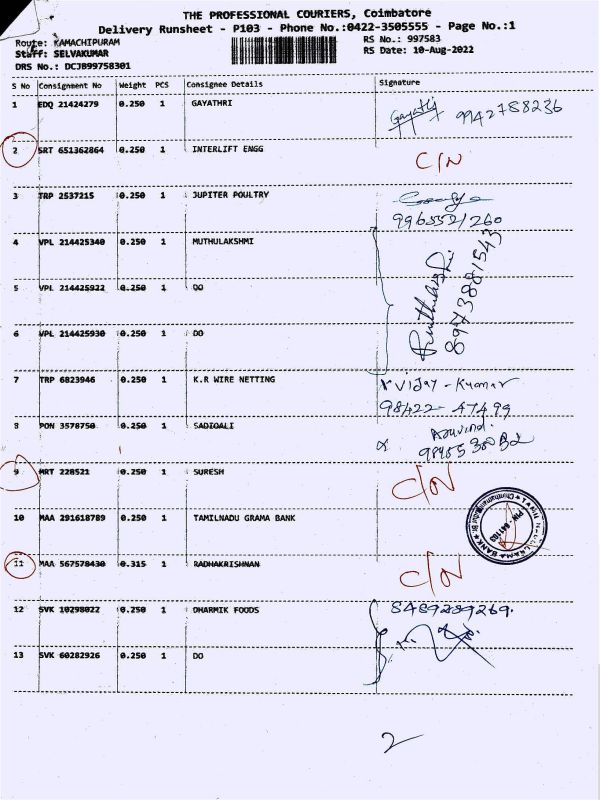 THE PROFESSIONAL COURIERS, Coimbatore
Delivery Runsheet - P103 - Phone No.:0422-3505555 - Page No.:1
Route: KAMACHIPURAM RS No.: 997583
Staff: SELVAKUMAR RS Date: 10-Aug-2022
DRS No.: DCJB99758301
S No Consignment No Weight PCS Consignee Details Signature
1 EDQ 21424279 0.250 1 GAYATHRI Gayathri 9942758236
2 SRT 651362864 0.250 1 INTERLIFT ENGG C/N
3 TRP 2537215 0.250 1 JUPITER POULTRY
9965521260
4 VPL 214425340 0.250 1 MUTHULAKSHMI Muthulakshmi 8973881543
5 VPL 214425922 0.250 1 DO
6 VPL 214425930 0.250 1 DO
7 TRP 6823946 0.250 1 K.R WIRE NETTING vijay - Kumar
98422 - 47499
8 PON 3578750 0.250 1 SADIOALI Aravind.
9 MRT 228521 0.250 1 SURESH C/N
10 MAA 291618789 0.250 1 TAMILNADU GRAMA BANK
11 MAA 567578430 0.315 1 RADHAKRISHNAN C/N
12 SVK 10298022 0.250 1 DHARMIK FOODS 8489289269.
13 SVK 60282926 0.250 1 DO
2